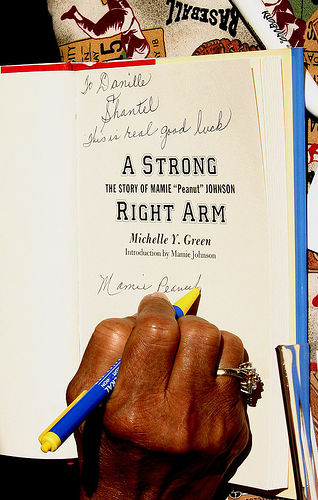 BASEBALL
To Danille
Shantel
This is real good luck
A STRONG
THE STORY OF MAMIE "Peanut" JOHNSON
RIGHT ARM
Michelle Y. Green
Introduction by Mamie Johnson
Mamie Peanut